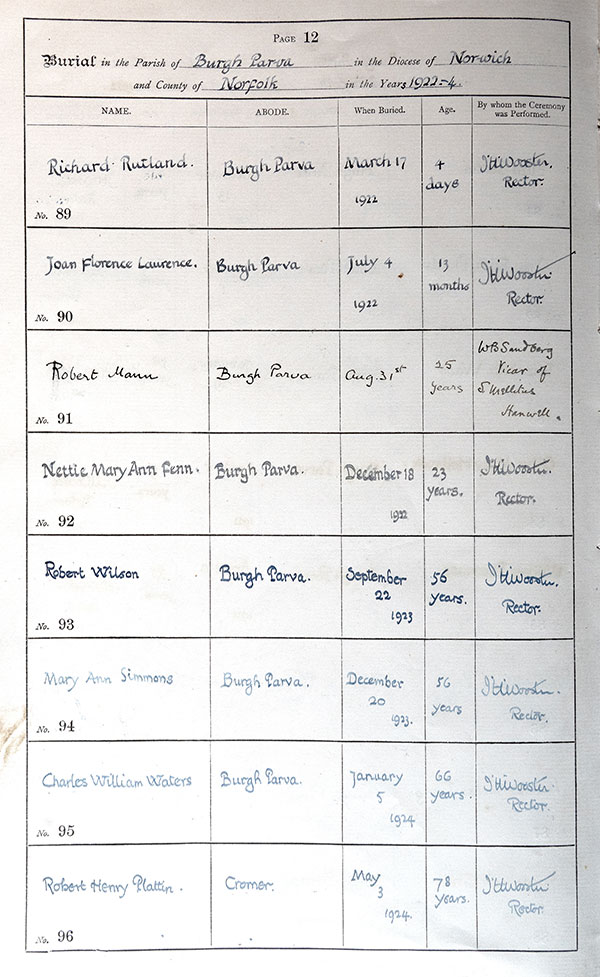 PAGE 12
Burial in the Parish of Burgh Parva in the Diocese of Norwich
and County of Norfolk in the Years 1922-4.
NAME. ABODE. When Buried. Age. By whom the Ceremony was Performed.
Richard Rutland. Burgh Parva March 17 1922 4 days Wooster, Rector.
No. 89
Joan Florence Laurence. Burgh Parva July 4 1922 13 months Wooster Rector.
No. 90
Robert Mann Burgh Parva Aug. 31st 25 years WB Sandberg Vicar of S Mellitus Hanwell.
No. 91
Nettie Mary Ann Fenn. Burgh Parva. December 18 1922 23 years. Wooster. Rector.
No. 92
Robert Wilson Burgh Parva. September 22 1923 56 years. Wooster. Rector.
No. 93
Mary Ann Simmons Burgh Parva. December 20 1923. 56 years Wooster. Rector.
No. 94
Charles William Waters Burgh Parva. January 5 1924 66 years. Wooster. Rector.
No. 95
Robert Henry Plattin. Cromer. May 3 1924. 78 years. Wooster Rector.
No. 96